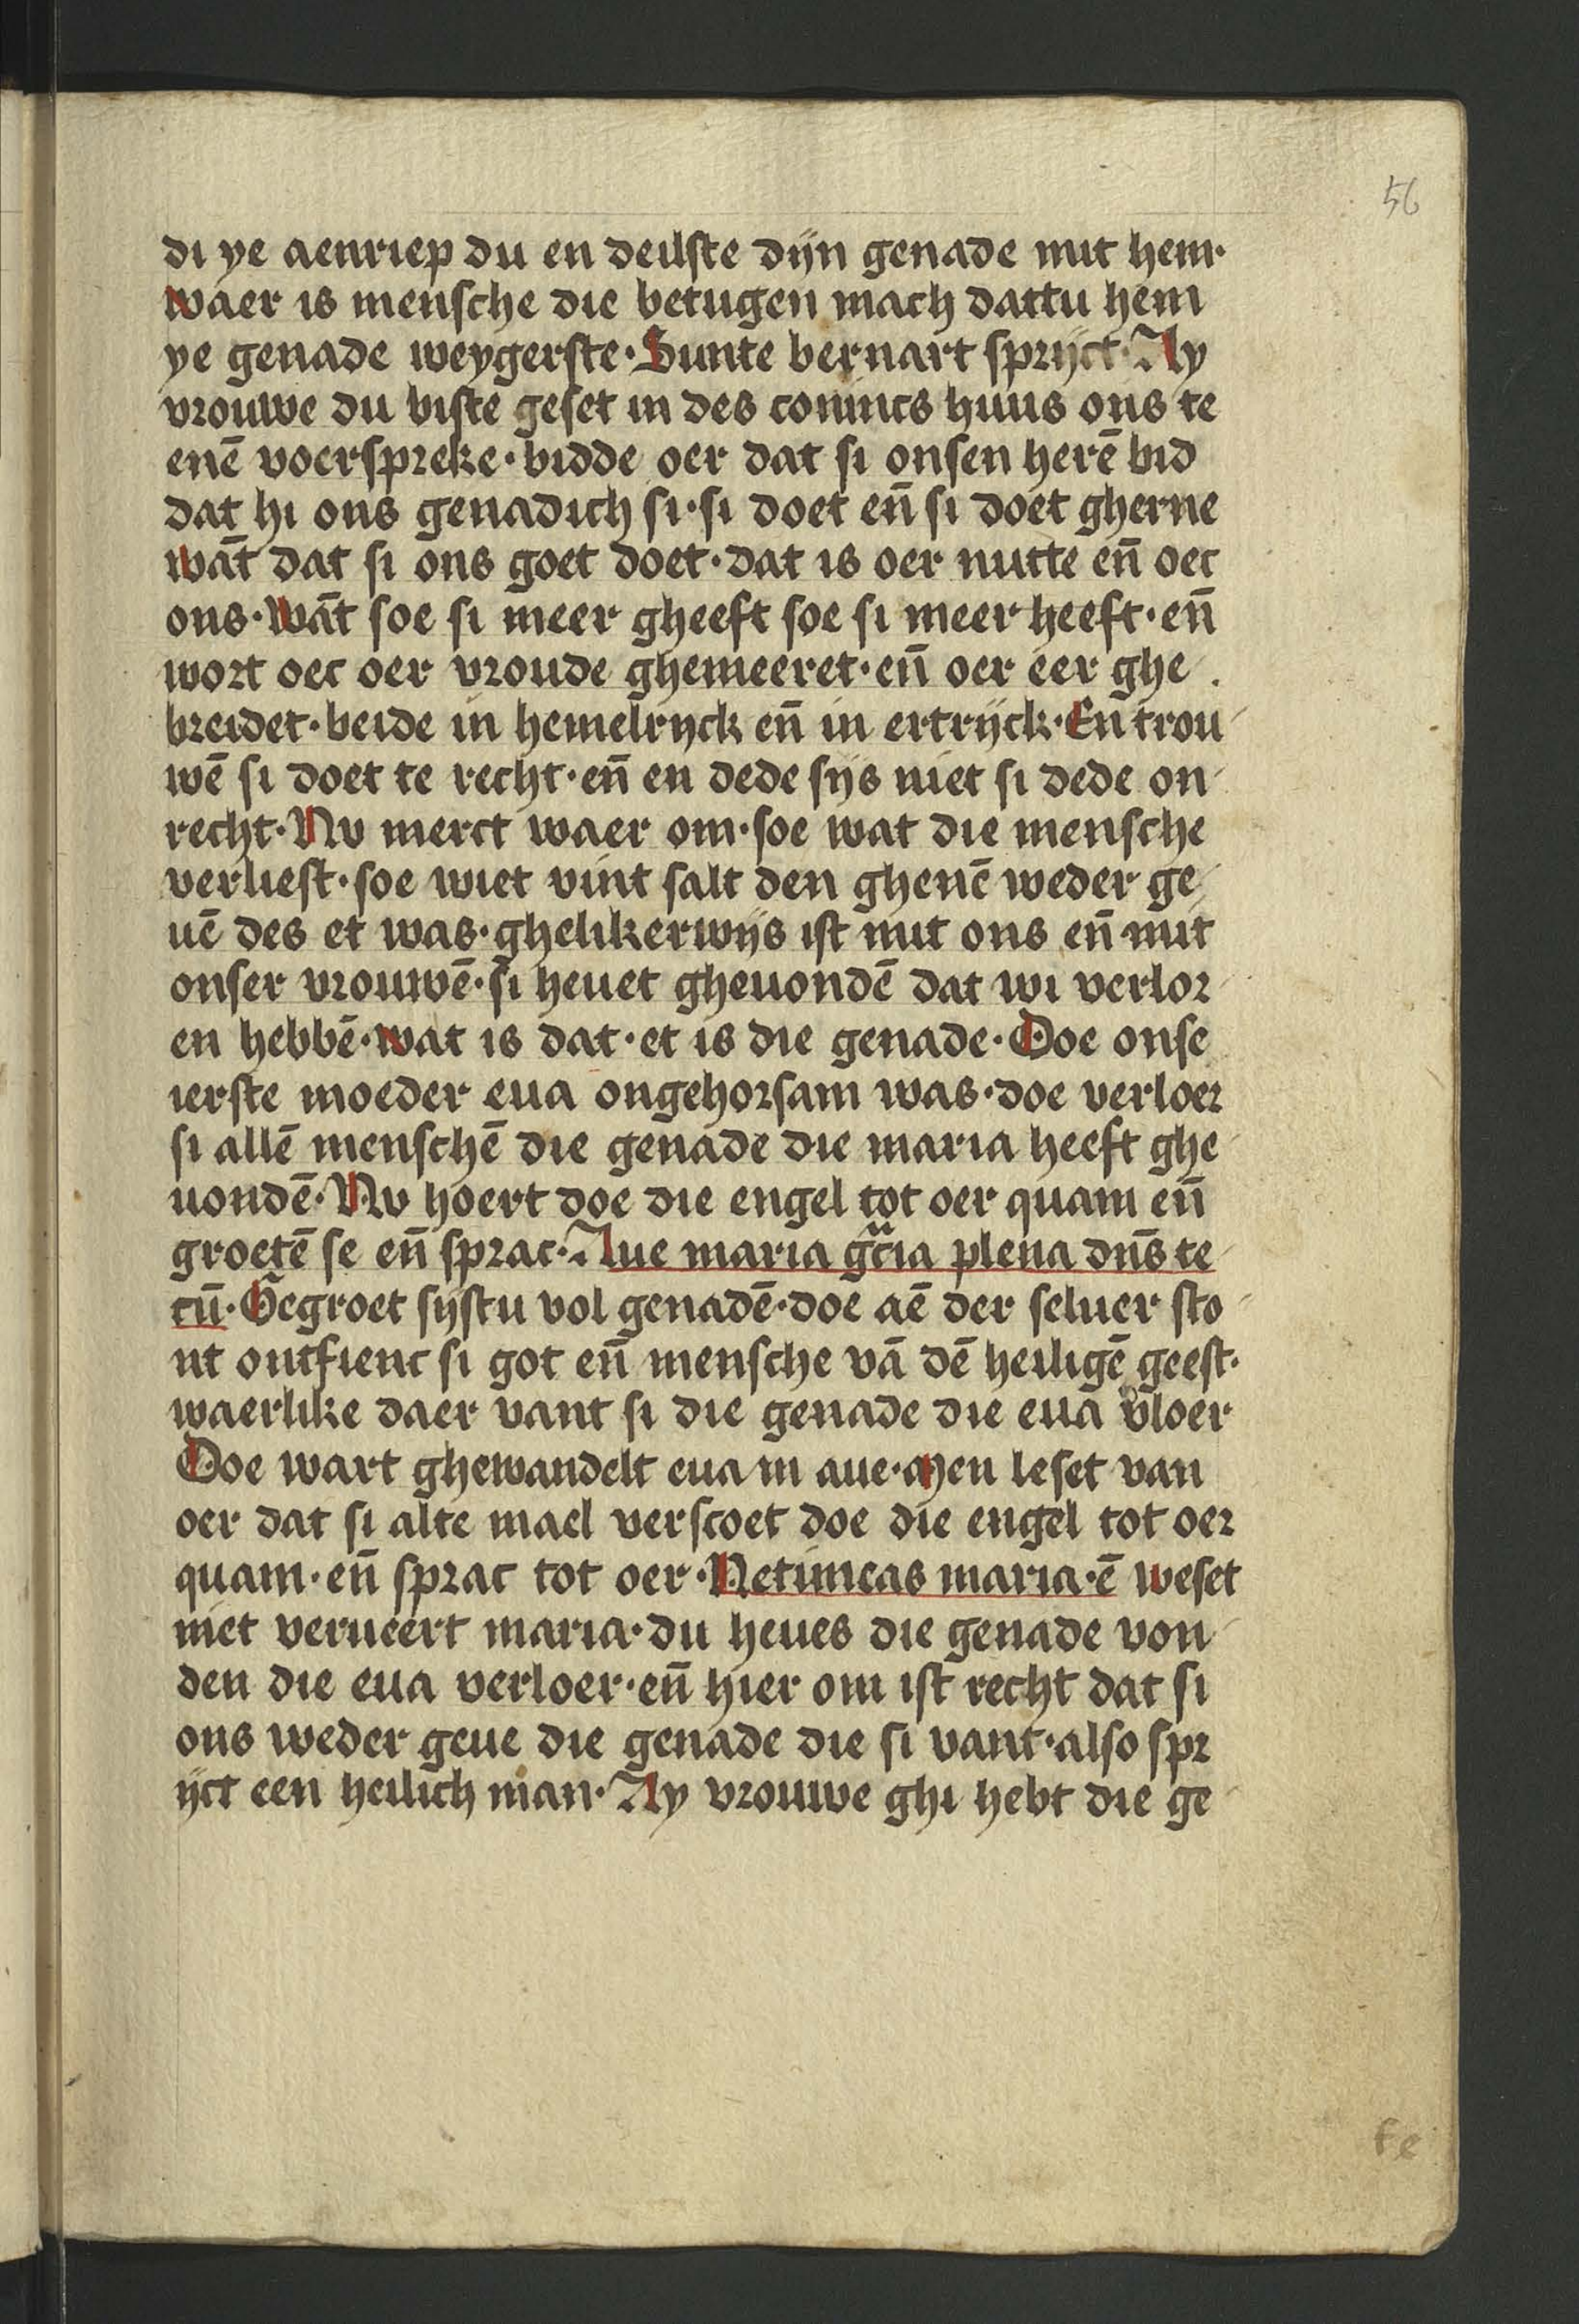 56
di ye aenriep du en deilste dijn genade mit hem·
waer is mensche die betugen mach dattu hem
ye genade weygerste· Sunte bernart sprijct· Ay
vrouwe du biste geset in des conincs huus ons te
enē voerspreke· bidde oer dat si onsen herē bid
dat hi ons genadich si· si doet en̄ si doet gherne
wāt dat si ons goet doet· dat is oer nutte en̄ oec
ons· Wāt soe si meer gheeft soe si meer heeft· en̄
wort oec oer vroude ghemeeret· en̄ oer eer ghe
breidet· beide in hemelryck en̄ in ertrijck· En trou
wē si doet te recht· en̄ en dede sijs niet si dede on
recht· Nv merct waer om· soe wat die mensche
verliest· soe wiet vint salt den ghenē weder ge
uē des et was· ghelikerwijs ist mit ons en̄ mit
onser vrouwē· si heuet gheuondē dat wi verlor
en hebbē· wat is dat· et is die genade· Doe onse
ierste moeder eua ongehorsam was· doe verloer
si allē menschē die genade die maria heeft ghe
uondē· Nv hoert doe die engel tot oer quam en̄
groetē se en̄ sprac· Aue maria gr̄cia plena dn̄s te
cū· Gegroet sijstu vol genadē· doe aē der seluer sto
nt ontfienc si got en̄ mensche vā dē heiligē geest·
waerlike daer vant si die genade die eua v̄loer
Doe wart ghewandelt eua in aue· Men leset van
oer dat si alte mael verscoet doe die engel tot oer
quam· en̄ sprac tot oer· Netimeas maria· ē weset
niet verueert maria· du heues die genade von
den die eua verloer· en̄ hier om ist recht dat si
ons weder geue die genade die si vant· also spr
ijct een heilich man· Ay vrouwe ghi hebt die ge